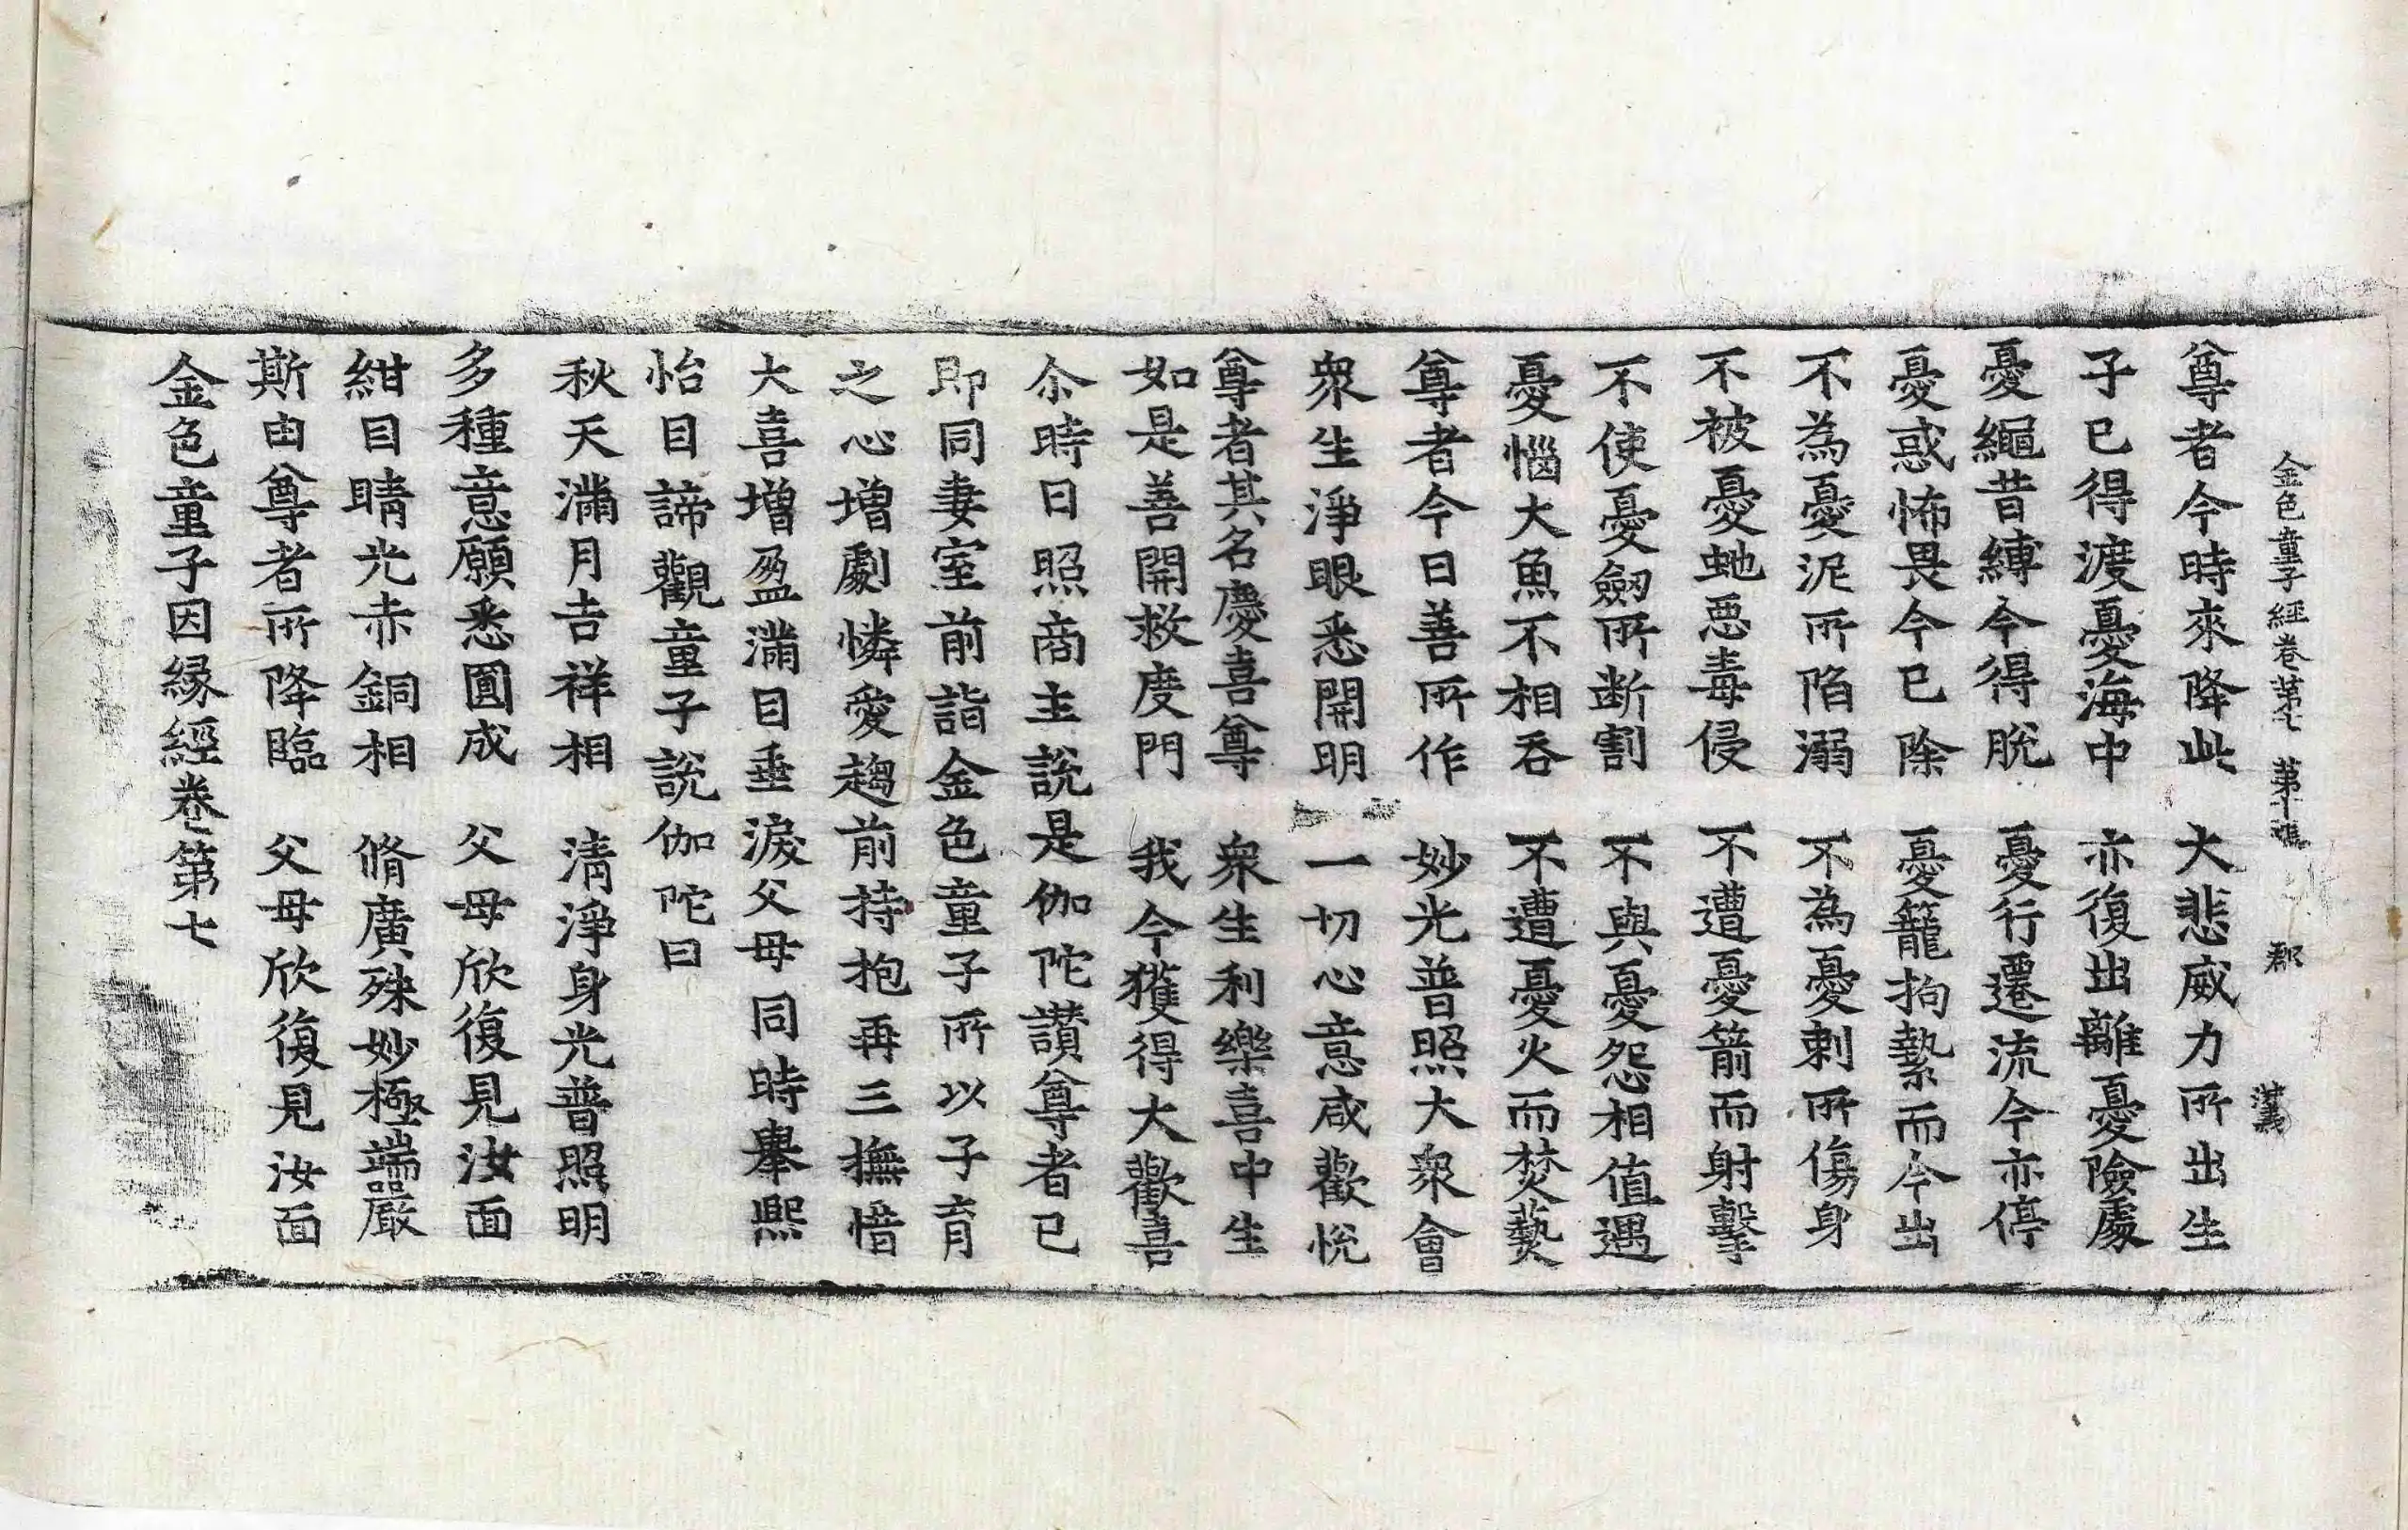 金色童子經卷第七 第十張 郡
尊者今時來降此 大悲威力所出生
子已得渡憂海中 亦復出離憂險處
憂繩昔縛今得脫 憂行遷流今亦停
憂惑怖畏今已除 憂籠拘縶而今出
不為憂泥所陷溺 不為憂刺所傷身
不被憂虵惡毒侵 不遭憂箭而射擊
不使憂劒所断割 不與憂怨相值遇
憂惱大魚不相吞 不遭憂火而焚爇
尊者今日善所作 妙光普照大衆會
衆生淨眼悉開明 一切心意咸歡悅
尊者其名慶喜尊 衆生利樂喜中生
如是善開救度門 我今獲得大歡喜
尒時日照商主說是伽陀讚尊者已
即同妻室前詣金色童子所以子育
之心增劇憐愛趨前持抱再三撫惜
大喜增盈滿目垂淚父母同時舉熈
怡目諦觀童子說伽陀曰
秋天滿月吉祥相 清淨身光普照明
多種意願悉圓成 父母欣復見汝面
紺目睛光赤銅相 脩廣殊妙極端嚴
斯由尊者所降臨 父母欣復見汝面
金色童子因緣經卷第七